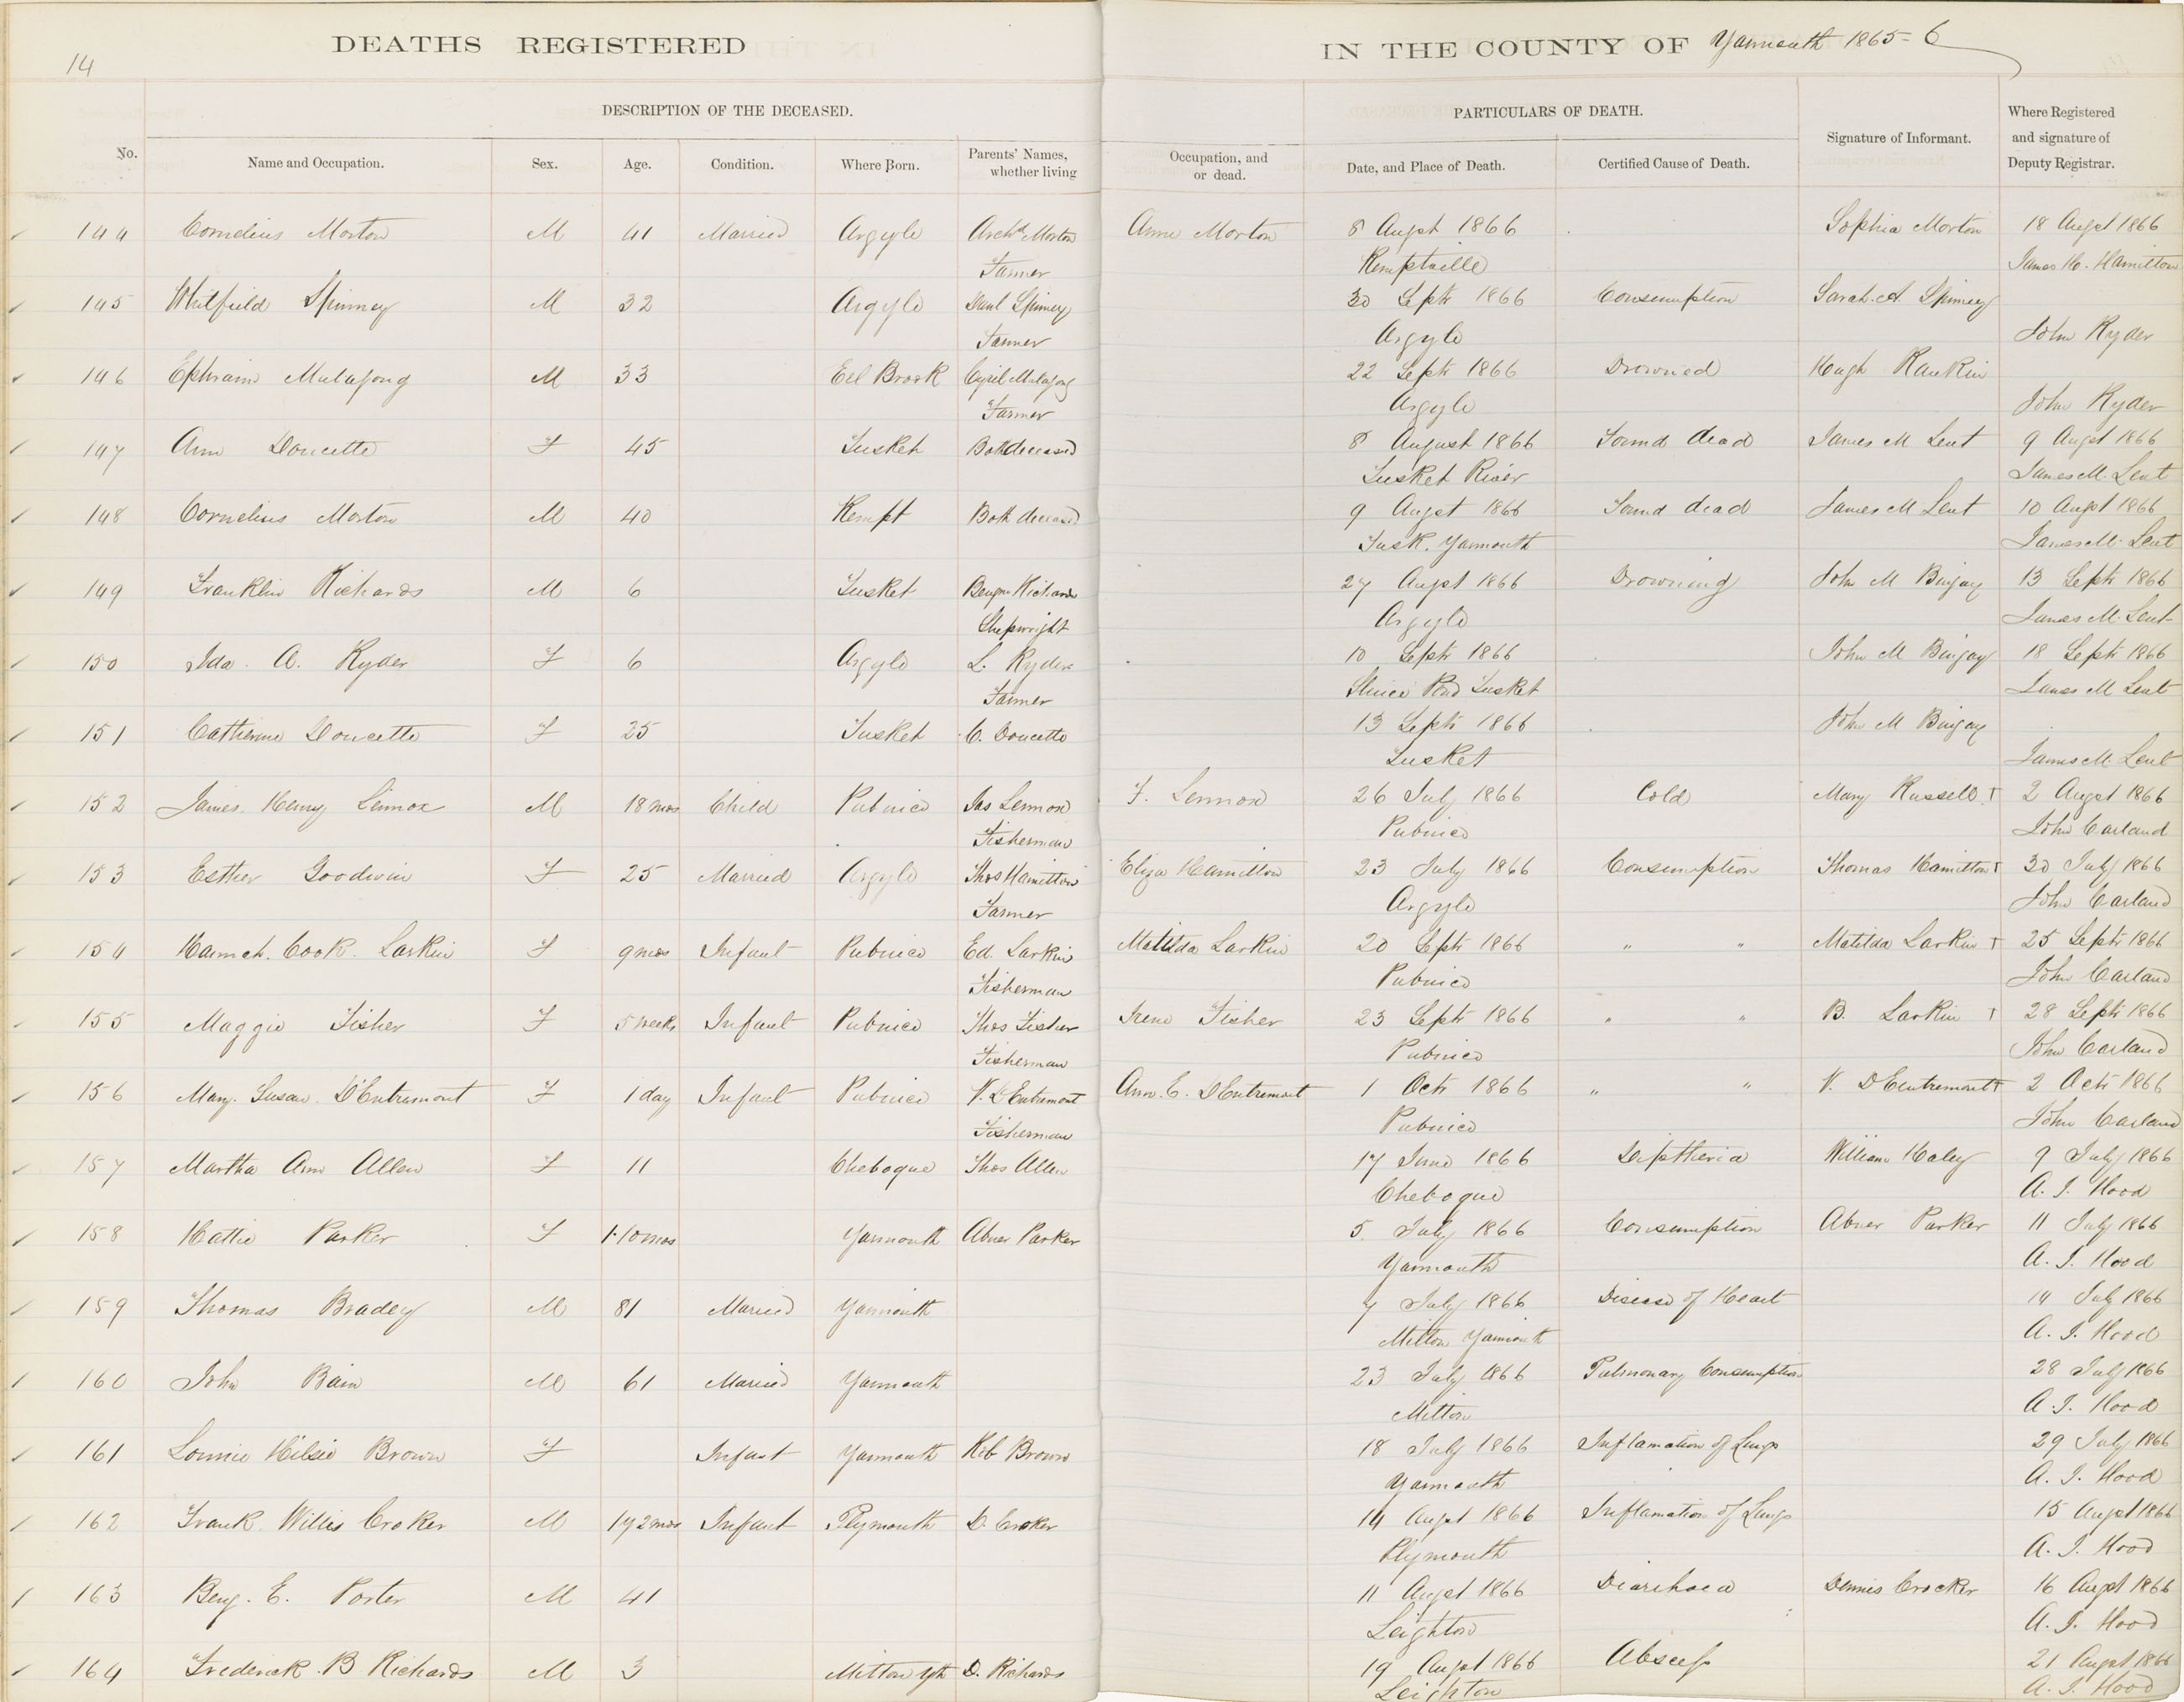 14
DEATHS REGISTERED IN THE COUNTY OF Yarmouth 1865-6
DESCRIPTION OF THE DECEASED. PARTICULARS OF DEATH.
No. Name and Occupation. Sex. Age. Condition. Where Born. Parents' Names, whether living Occupation, and or dead. Date, and Place of Death. Certified Cause of Death. Signature of Informant. Where Registered and signature of Deputy Registrar.
144 Cornelius Morton M 41 Married Argyle Archd Morton Anne Morton 8 Augst 1866 Sophia Morton 18 Augst 1866
Farmer Kemptville James H. Hamilton
145 Whitfield Spinney M 32 Argyle Spinney 30 Septr 1866 Consumption Sarah A. Spinney
Farmer Argyle John Ryder
146 Ephraim Mulafong M 33 Eel Brook Cyril Mulafong 22 Septr 1866 Drowned Hugh Rankin
Farmer Argyle John Ryder
147 Ann Doucette F 45 Tusket Both deceased 8 August 1866 Found dead James M Lent 9 Augst 1866
Tusket River James M. Lent
148 Cornelius Morton M 40 Kempt Both deceased 9 Augst 1866 Found dead James M Lent 10 Augst 1866
Tusk. Yarmouth James M. Lent
149 Franklin Richards M 6 Tusket Benjn Richards 27 Augst 1866 Drowning John M Bingay 13 Septr 1866
Shipwright Argyle James M. Lent
150 Ida. A. Ryder F 6 Argyle L. Ryder 10 Septr 1866 John M Bingay 18 Septr 1866
Farmer Sluice Pond Tusket James M Lent
151 Catherine Doucette F 25 Tusket C. Doucette 13 Septr 1866 John M Bingay
Tusket James M Lent
152 James Henry Lennox M 18 mos Child Pubnico Jas Lennox F. Lennox 26 July 1866 Cold Mary Russell 2 Augst 1866
Fisherman Pubnico John Carland
153 Esther Goodwin F 25 Married Argyle Thos Hamilton Eliza Hamilton 23 July 1866 Consumption Thomas Hamilton 30 July 1866
Farmer Argyle John Carland
154 Hannah. Cook. Larkin F 9 mos Infant Pubnico Ed. Larkin Matilda Larkin 20 Septr 1866 " " Matilda Larkin 25 Septr 1866
Fisherman Pubnico John Carland
155 Maggie Fisher F 5 weeks Infant Pubnico Thos Fisher Irene Fisher 23 Septr 1866 " " B. Larkin 28 Septr 1866
Fisherman Pubnico John Carland
156 Mary. Susan. D'Entremont F 1 day Infant Pubnico V. D'Entremont Ann. E. D'Entremont 1 Octr 1866 " " V. D'Entremont 2 Octr 1866
Fisherman Pubnico John Carland
157 Martha Ann Allen F 11 Chebogue Thos Allen 17 June 1866 Diptheria William Haley 9 July 1866
Chebogue A. J. Hood
158 Hattie Parker F 1.10 mos Yarmouth Abner Parker 5 July 1866 Consumption Abner Parker 11 July 1866
Yarmouth A. J. Hood
159 Thomas Bradey M 81 Married Yarmouth 7 July 1866 Disease of Heart 14 July 1866
Milton Yarmouth A. J. Hood
160 John Bain M 61 Married Yarmouth 23 July 1866 Pulmonary Consumption 28 July 1866
Milton A. J. Hood
161 Brown F Infant Yarmouth Brown 18 July 1866 Inflamation of Lungs 29 July 1866
Yarmouth A. J. Hood
162 Frank Willis Croker M 1y 2 mos Infant Plymouth D. Croker 14 Augst 1866 Inflamation of Lungs 15 Augst 1866
Plymouth A. J. Hood
163 Benj. E. Porter M 41 11 Augst 1866 Diarihoea Dennis Crocker 16 Augst 1866
Leighton A. J. Hood
164 Frederick B Richards M 3 Milton Yth D. Richards 19 Augst 1866 Abscess 21 Augst 1866
Leighton A. J. Hood